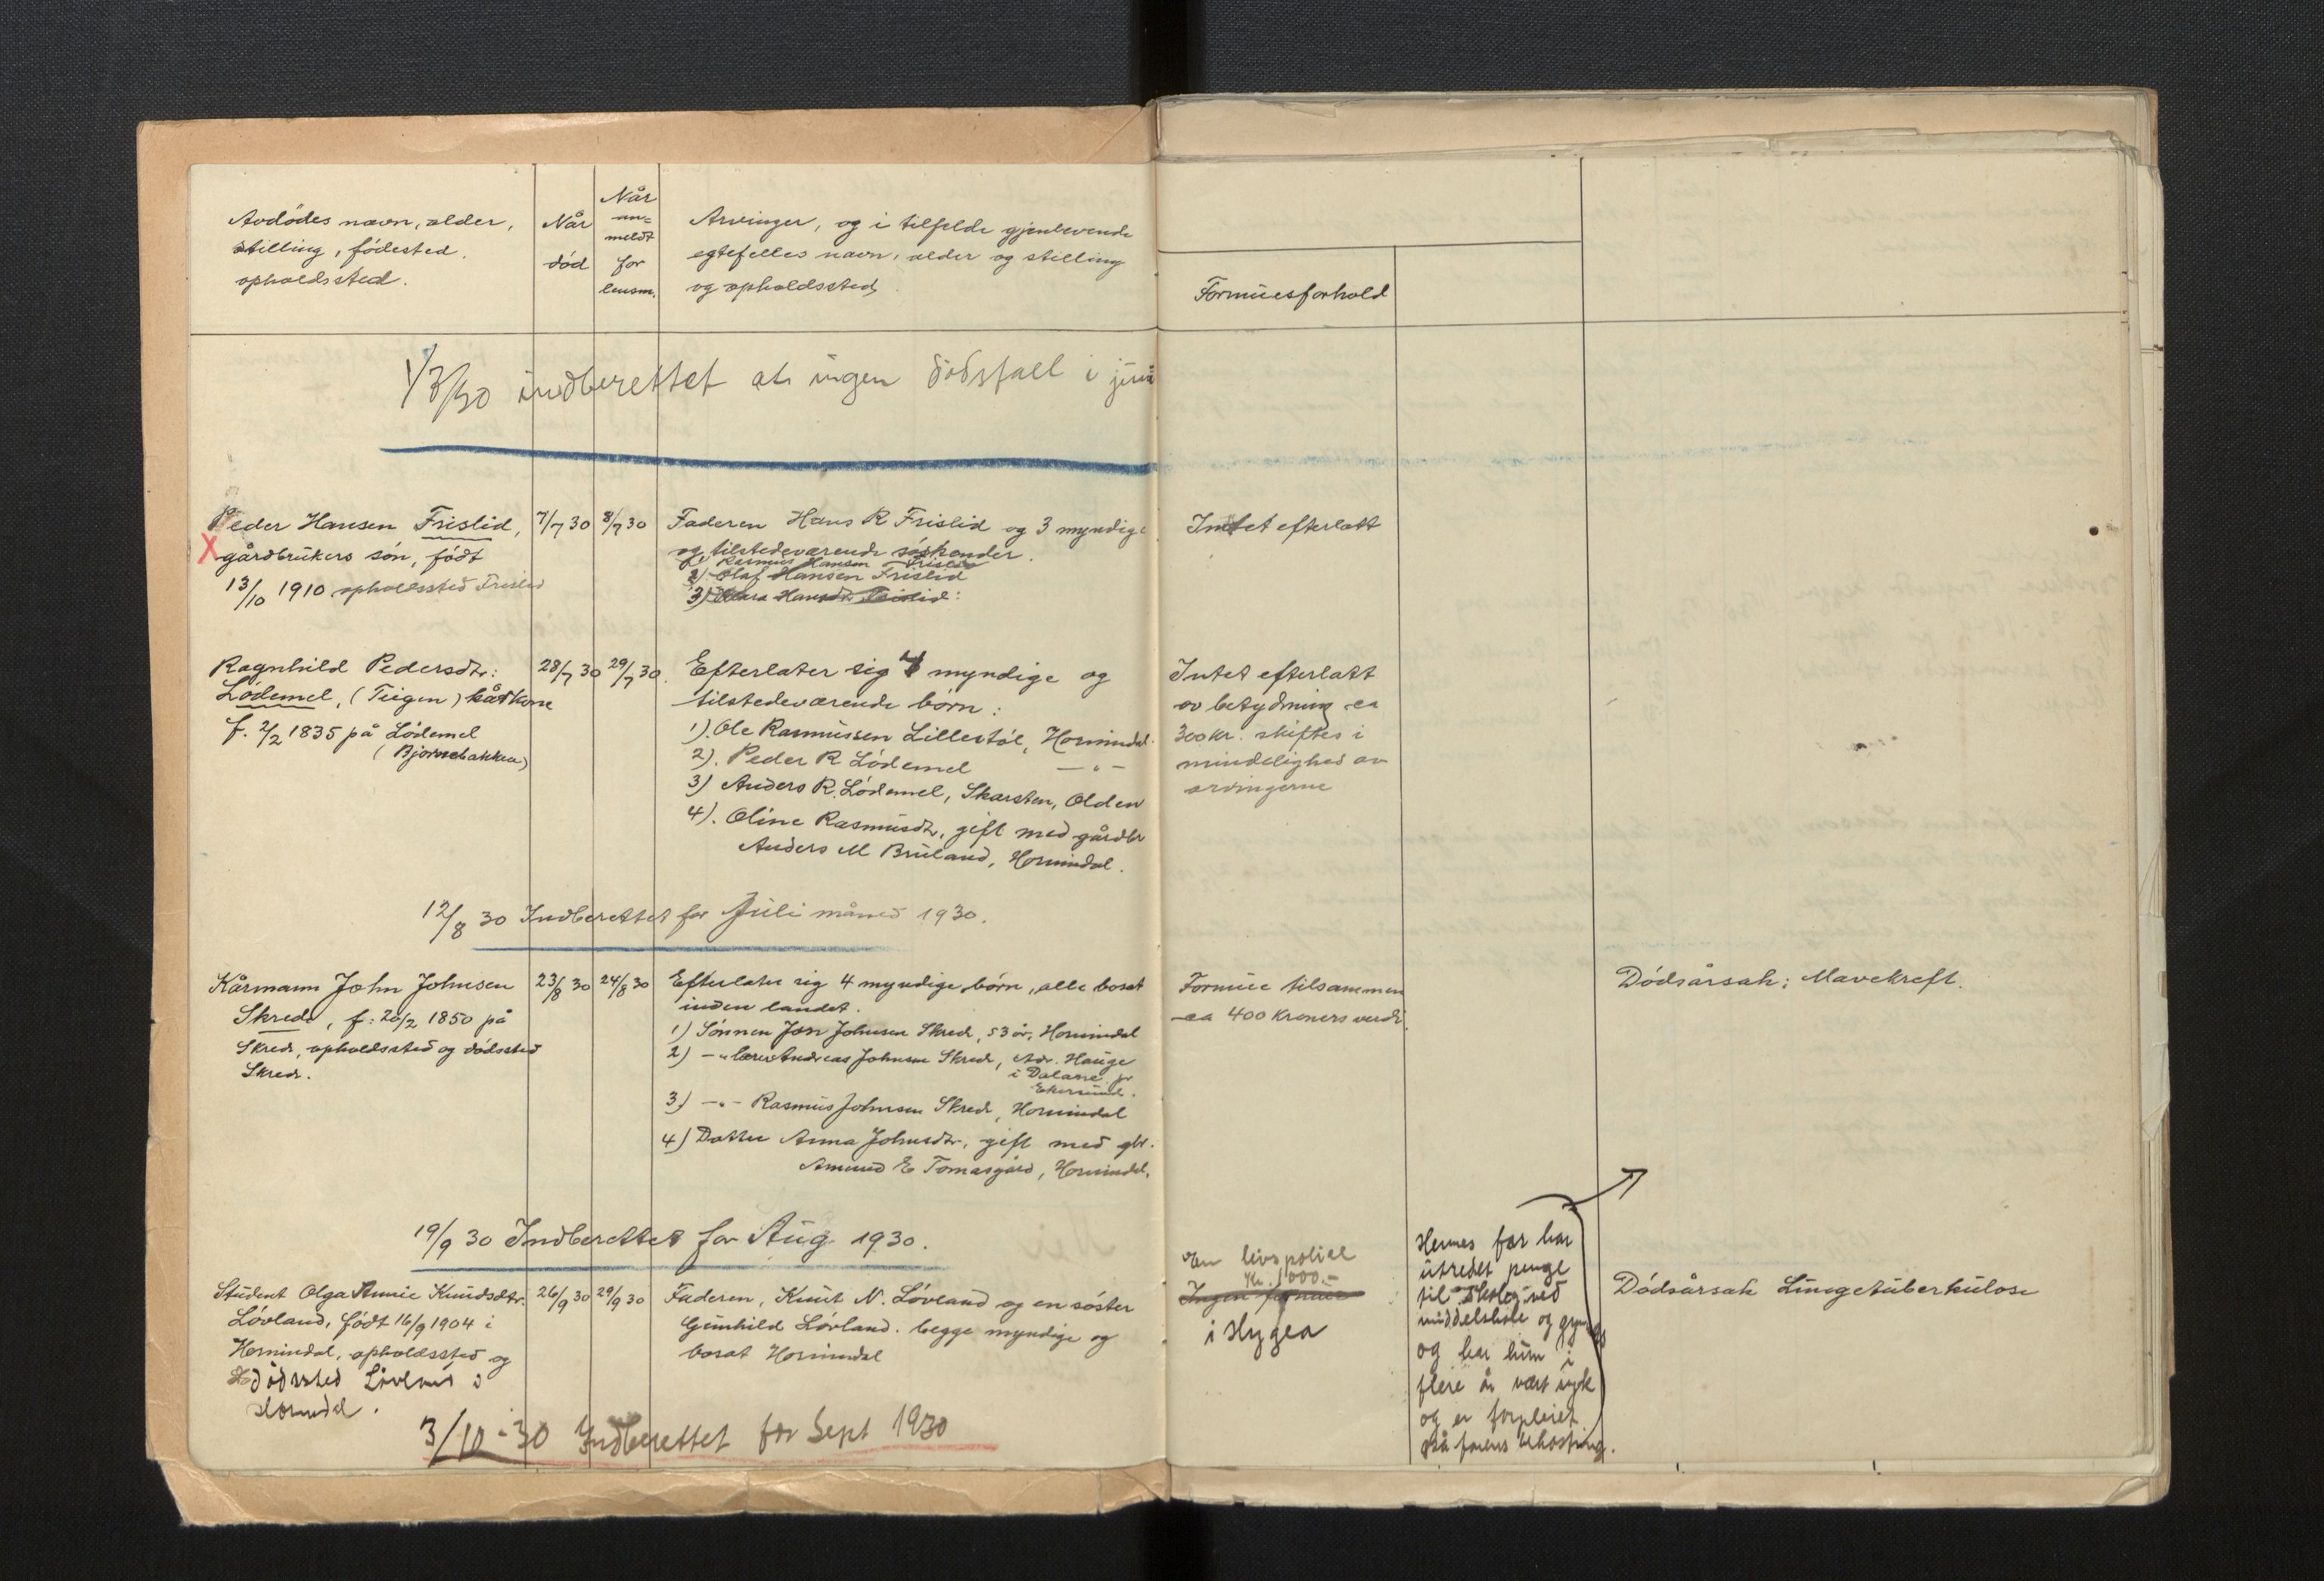 Avdødes navn, alder,
stilling, fødested.
opholdssted.
Når
død
Når
an=
meldt
for
lensm.
Arvinger, og i tilfelde gjenlevende
egtefelles navn, alder og stilling
og opholdssted
Formuesforhold
1/7/30 indberettet at ingen dødsfall i juni
Peder Hansen Frislid,
X gårdbrukers søn, født
13/10 1910 opholdssted Frislid
7/7 30
8/7 30
Faderen Hans R Frislid og 3 myndige
og tilstedeværende søskender.
1) Rasmus Hansen Frislid
2) Olaf Hansen Frislid
3) Klara Hansdtr. Frislid:
Intet efterlatt
Ragnhild Pedersdtr:
Lødemel, (Teigen) kårkone
f. 2/2 1835 på Lødemel
(Bjørnebakken)
28/7 30
29/7 30.
Efterlater sig 4 myndige og
tilstedeværende børn:
1). Ole Rasmussen Lillestøl, Hornindal.
2). Peder R Lødemel —"—
3) Anders R. Lødemel, Skarsten, Olden
4). Oline Rasmusdtr, gift med gårdbr
Anders M Bruland, Hornindal.
Intet efterlatt
av betydning ca
300 kr. skiftes i
mindelighed av
arvingerne
12/8 30 Indberettet for Juli måned 1930.
Kårmann John Johnsen
Skrede, f: 26/2 1850 på
Skrede, opholdssted og dødssted
Skrede.
23/8 30
24/8 30
Efterlater sig 4 myndige børn, alle bosat
inden landet.
1) Sønnen Jon Johnsen Skrede, 53 år, Hornindal
2) —"— lærer Andreas Johnsen Skrede, Adr. Hauge
i Dalane pr
Ekersund.
3) —"— Rasmus Johnsen Skrede, Hornindal
4) Datter Anna Johnsdtr, gift med gbr.
Amund E Tomasgård, Hornindal.
Formue tilsammen
ca 400 kroners verdi.
Dødsårsak: Mavekreft.
19/9 30 Indberettet for Aug 1930.
Student Olga Annie Knudsdtr.
Løvland, født 16/9 1904 i
Hornindal, opholdssted og
dødssted Løvland i
Hornindal.
26/9 30
29/9 30
Faderen, Knut N. Løvland og en søster
Gunhild Løvland. begge myndige og
bosat Hornindal
En livspolise
Kr. 1000.-
Ingen formue
i Hygea
Hennes far har
utredet penge
til skoleg. ved
middelskole og gymnas
og har hun i
flere år vært syk
og er forpleiet
på farens bekostning.
Dødsårsak Lungetuberkulose
3/10 - 30 Indberettet for Sept 1930